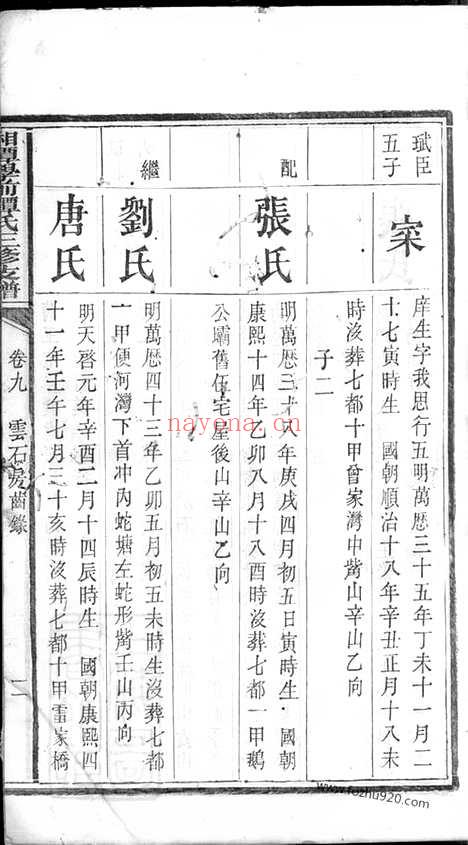 珷臣
五子
寀
庠生字我思行五明萬歷三十五年丁未十一月二
十七寅時生 國朝順治十八年辛丑正月十八未
時沒葬七都十甲曾家灣申觜山辛山乙向
子二
配
張氏
明萬歷三十八年庚戌四月初五日寅時生 國朝
康熙十四年乙卯八月十八酉時沒葬七都一甲鵝
公壩舊伍宅屋後山辛山乙向
繼
劉氏
明萬歷四十三年乙卯五月初五未時生沒葬七都
一甲便河灣下首冲內蛇塘左蛇形觜壬山丙向
唐氏
明天啓元年辛酉二月十四辰時生 國朝康熙四
十一年壬午七月三十亥時沒葬七都十甲雷家橋
氏三修支譜
卷九 雲石房齒錄
nayona.cn
www.fozhu920.com